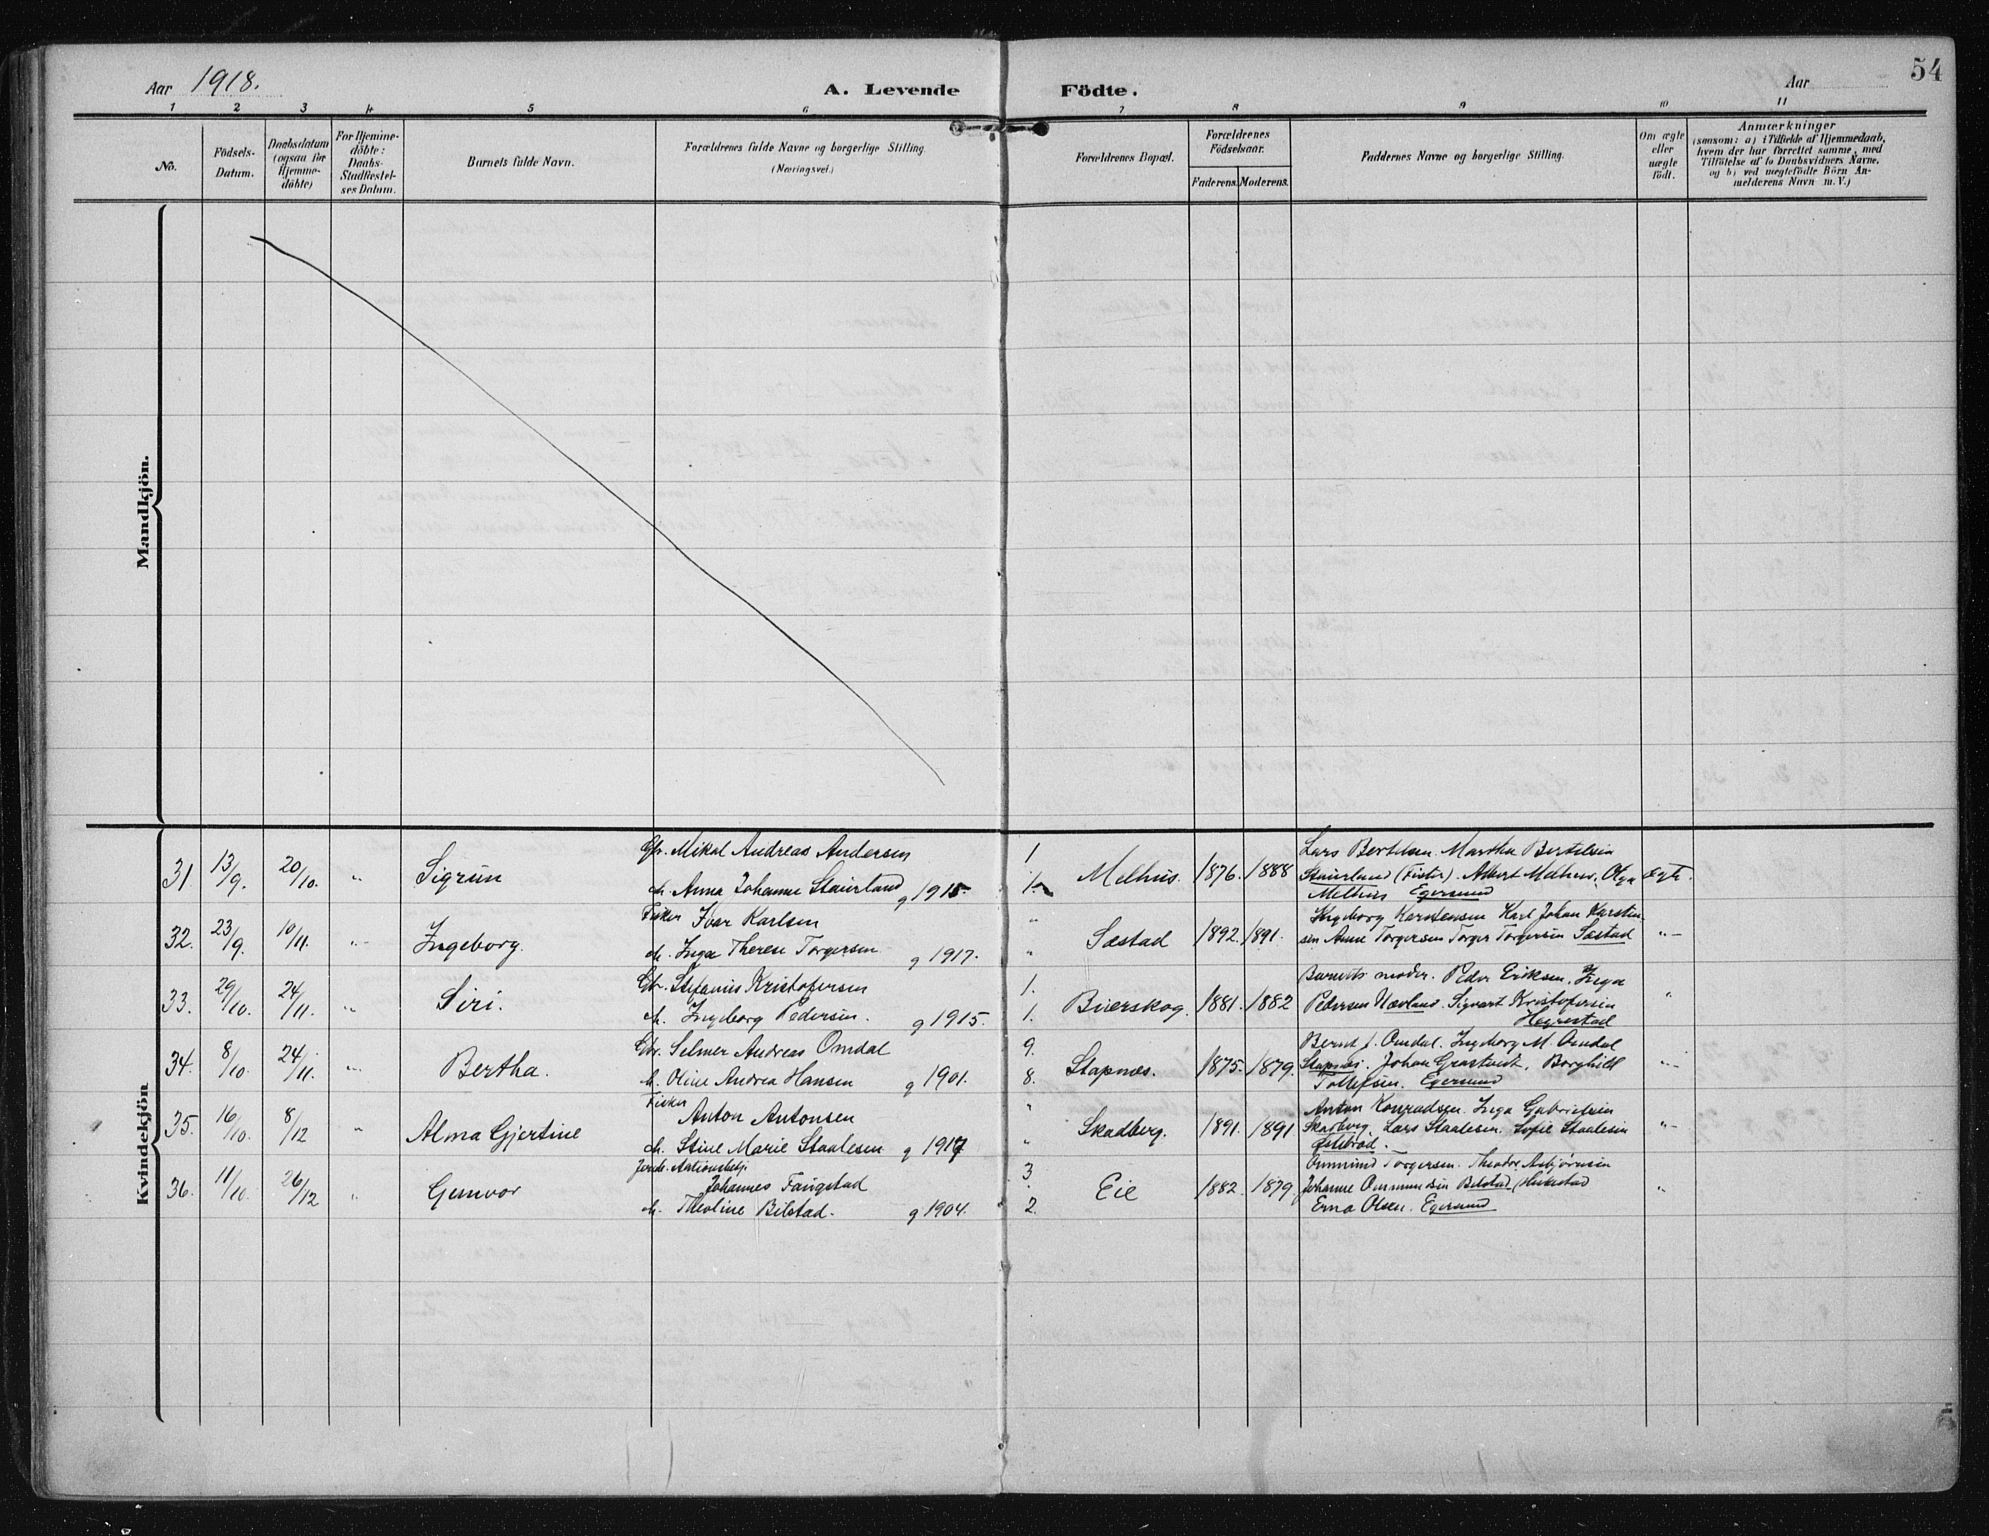 Aar 1918.
A. Levende Födte.
Aar
54
1 2 3 4 5 6 7 8 9 10 11
No.
Födsels-
Datum.
Daabsdatum
(ogsaa for
Hjemme-
döbte)
For Hjemme-
döbte:
Daabs-
Stadfæstel-
ses Datum.
Barnets fulde Navn.
Forældrenes fulde Navne og borgerlige Stilling.
(Næringsvei.)
Forældrenes Bopæl.
Forældrenes
Födselsaar.
Faderens. Moderens.
Faddernes Navne og borgerlige Stilling.
Om ægte
eller
uægte
födt.
Anmærkninger
(saasom: a) i Tilfælde af Hjemmedaab,
hvem der har forrettet samme, med
Tilföielse af to Daabsvidners Navne,
og b) ved uægtefödte Börn An-
melderens Navn m. V.)
Mandkjön.
Kvindekjön
31 13/9. 20/10. " Sigrun
Gbr. Mikal Andreas Andersen
h. Anna Johanne Staurland g 1915.
1
1.
Melhus. 1876. 1888
Lars Bertelsen. Martha Bertelsen
Staurland (Fister). Albert Melhus. Olga
Melhus Egersund
Ægte.
32. 23/9. 10/11. " Ingeborg.
Fisker Ivar Karlsen
h. Inga Therese Torgersen. g 1917.
"
"
Sæstad 1892. 1891.
Ingeborg Karstensen Karl Johan Karsten
sen Anne Torgersen Torger Torgersen Sæstad
"
33. 29/10. 24/11. " Siri.
Gbr. Stefanus Kristofersen
h. Ingeborg Pedersen. g 1915.
1.
1.
Buerskog. 1881. 1882
Barnets moder. Peder Eriksen. Inga
Pedersen Nævland. Sigvart Kristofersen
Hegrestad
"
34. 8/10. 24/11. " Bertha.
Gbr. Selmer Andreas Omdal
h. Oline Andrea Hansen g 1901.
9.
8.
Stapnæs. 1875. 1879.
Bernt J. Omdal. Ingeborg M. Omdal
Stapnæs. Johan Grastveit. Borghild
Tollefsen. Egersund
"
35. 16/10. 8/12 " Alma Gjertine
Fisker
Anton Antonsen
h. Stine Marie Staalesen g 1917
"
"
Skadberg. 1891. 1891
Anton Konradsen. Inga Gabrielsen
Skadberg. Lars Staalesen. Sofie Staalesen
"
36. 11/10. 26/12 " Gunvor
Johannes Fangstad
h. Theoline Bilstad. g 1904.
3.
2.
Eie 1882. 1879
Ommund Torgersen. Theodor Asbjørnsen
Johanne Ommundsen Bilstad
Erna Olsen. Egersund
"